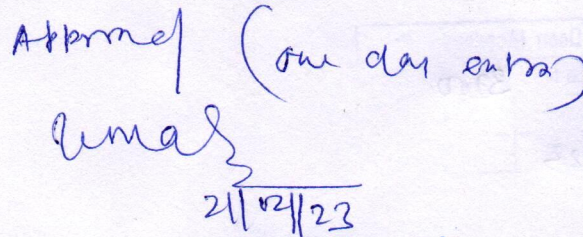 Approved (one day extra)
21/12/23